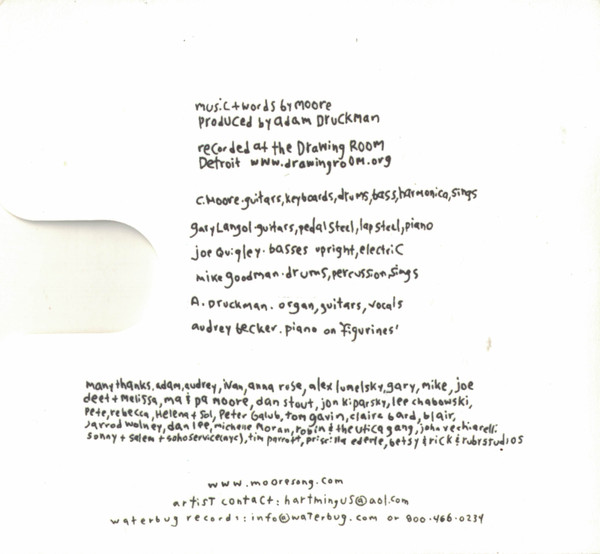 music + words by moore
Produced by adam Druckman
recorded at the Drawing ROOM
Detroit www.drawingrooM.org
c.Moore.guitars,keyboards,drums,bass,harmonica,sings
gary Langol.guitars,pedal steel,lap steel,piano
joe Quigley. basses upright,electric
mike goodman.drums,percussion,sings
A. Druckman. organ,guitars,vocals
audrey becker.piano on 'figurines'
many thanks.adam,audrey,ivan,anna ruse,alex lumelsky,gary,mike,joe
deet + Melissa,ma & pa moore,dan stout,jon kiparsky,lee chabowski,
Pete,rebecca,Helena + Sol,Peter Galub,tom gavin,claire bard,blair,
Jarrod wolney,dan lee,michene Moran,robin & the utica gang,john vechiarelli
sonny + salem + sohoservice(nyc),tim parrott,priscilla ederle,betsy & rick & rubystudiOS
www.mooresong.com
artist contact: hartmingus@aol.com
waterbug records: info@waterbug.com or 800.466.0234